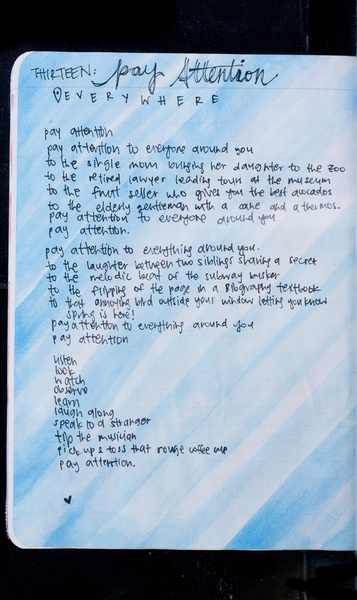 THIRTEEN: pay Attention
EVERYWHERE
pay attention
pay attention to everyone around you
to the single mom bringing her daughter to the zoo
to the retired lawyer leading tours at the museum
to the fruit seller who gives you the best avocados
to the elderly gentleman with a cane and a thermos.
pay attention to everyone around you
pay attention.
pay attention to everything around you.
to the laughter between two siblings sharing a secret
to the melodic beat of the subway busker
to the flipping of the page in a Biography textbook
to that annoying bird outside your window letting you know
spring is here!
pay attention to everything around you
pay attention
listen
look
watch
observe
learn
laugh along
speak to a stranger
tip the musician
pick up & toss that rouge coffee cup
pay attention.